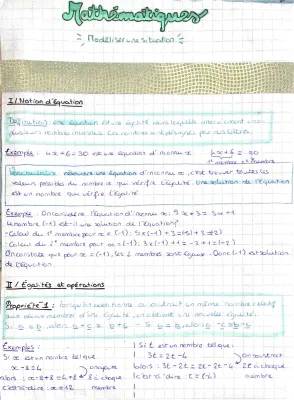 Mathématiques
Modéliser une situation
I / Notion d'équation
Définition : une équation est une égalité dans laquelle
plusieurs nombres
Exemple : 4x + 6 = 30 est une équation d'inconnue x
1er membre 2nd membre
résoudre une équation d'inconnue x, c'est trouver toutes les
valeurs possibles du nombre x qui vérifie l'égalité. Une solution de l'équation
est un nombre qui vérifie l'égalité
Exemple : On considère l'équation d'inconnue x : 5x + 3 = 3x + 1
Le nombre (-1) est-il une solution de l'équation ?
- Calcul du 1er membre pour x = (-1) : 5 x (-1) + 3 =
- Calcul du 2nd membre pour x = (-1) : 3 x (-1) + 1 = -3 + 1 = (-2)
On constate que pour x = (-1), les 2 membres sont égaux. Donc (-1) est solution
de l'équation.
II / Égalités et opérations
Propriété 1 : lorsqu'on additionne ou soustrait un même nombre relatif
aux deux membres d'une égalité, on obtient une nouvelle égalité.
Si a = b, alors a + c = b + c - Si a = b, alors a - c = b - c
Exemples :
Si x est un nombre tel que
x - 8 = 4
alors : x - 8 + 8 = 4 + 8
on ajoute
8 à chaque
membre
c'est-à-dire : x = 12
Si t est un nombre tel que :
3t = 2t - 4
alors : 3t - 2t = 2t - 2t - 4
c'est-à-dire : t = (-4)
on soustrait
2t à chaque
membre